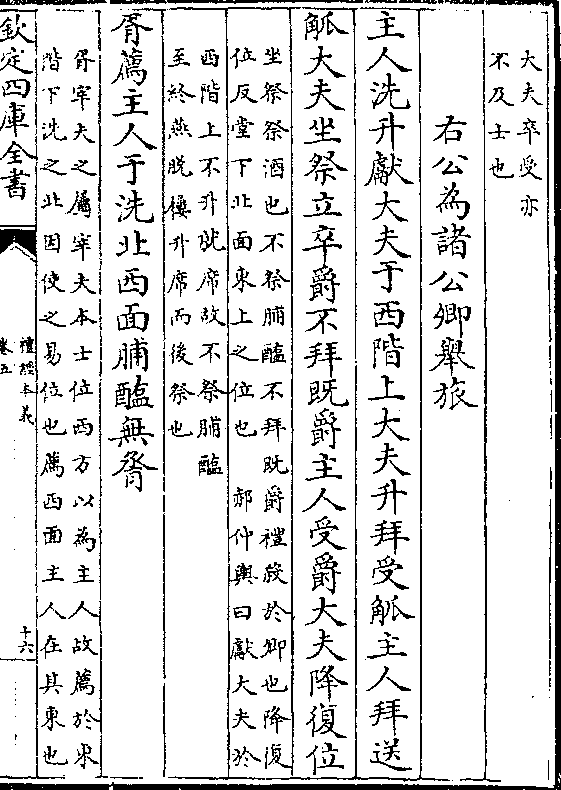 大夫卒受亦
不及士也
右公為諸公卿舉旅
主人洗升獻大夫于西階上大夫升拜受觚主人拜送
觚大夫坐祭立卒爵不拜既爵主人受爵大夫降復位
坐祭祭酒也不祭脯醢不拜既爵禮殺於卿也降復
位反堂下北面東上之位也 郝仲輿曰獻大夫於
西階上不升就席故不祭脯醢
至終燕脫屨升席而後祭也
胥薦主人于洗北西面脯醢無脀
胥宰夫之屬宰夫本士位西方以為主人故薦於東
階下洗之北因使之易位也薦西面主人在其東也
欽定四庫全書
禮經本義
卷五
十六